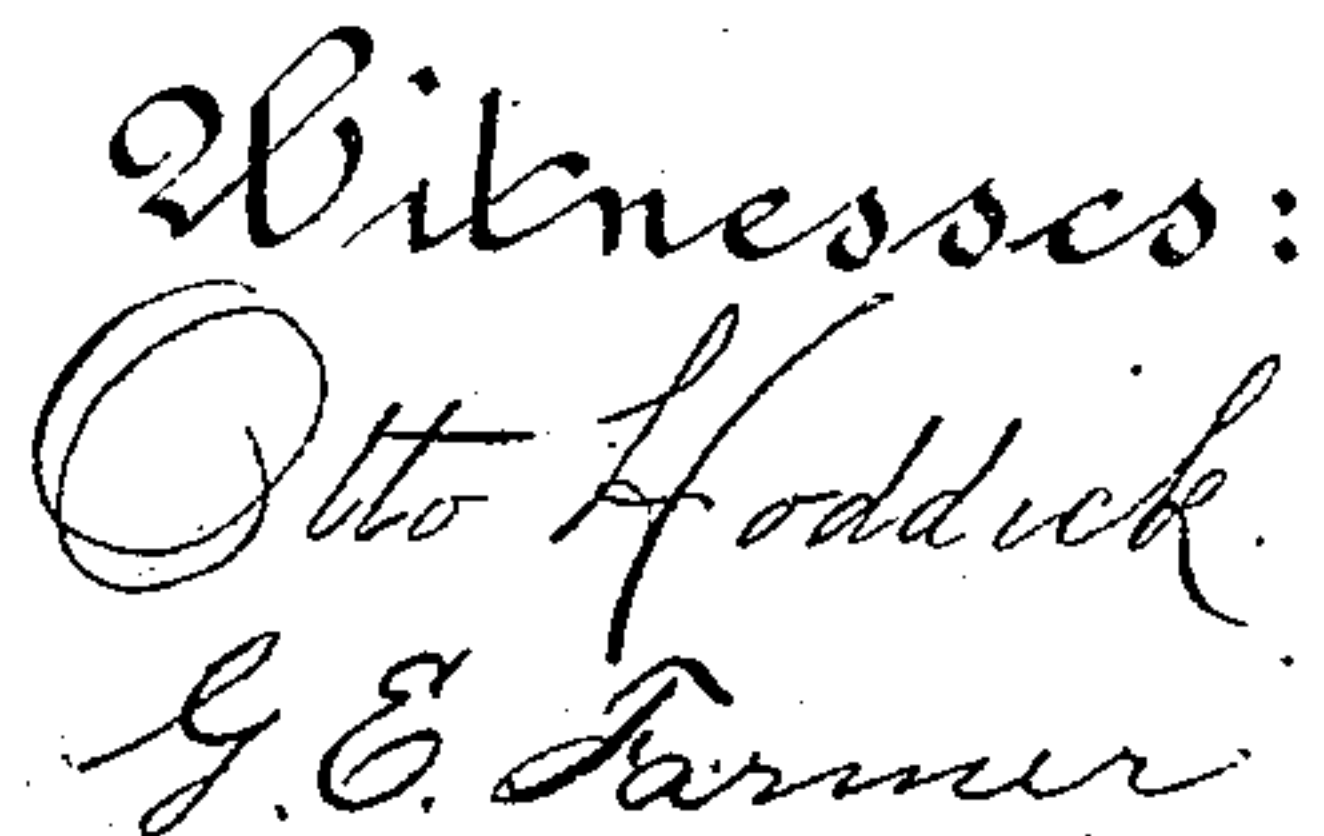 Witnesses:
Otto Hoddick.
G. E. Farmer